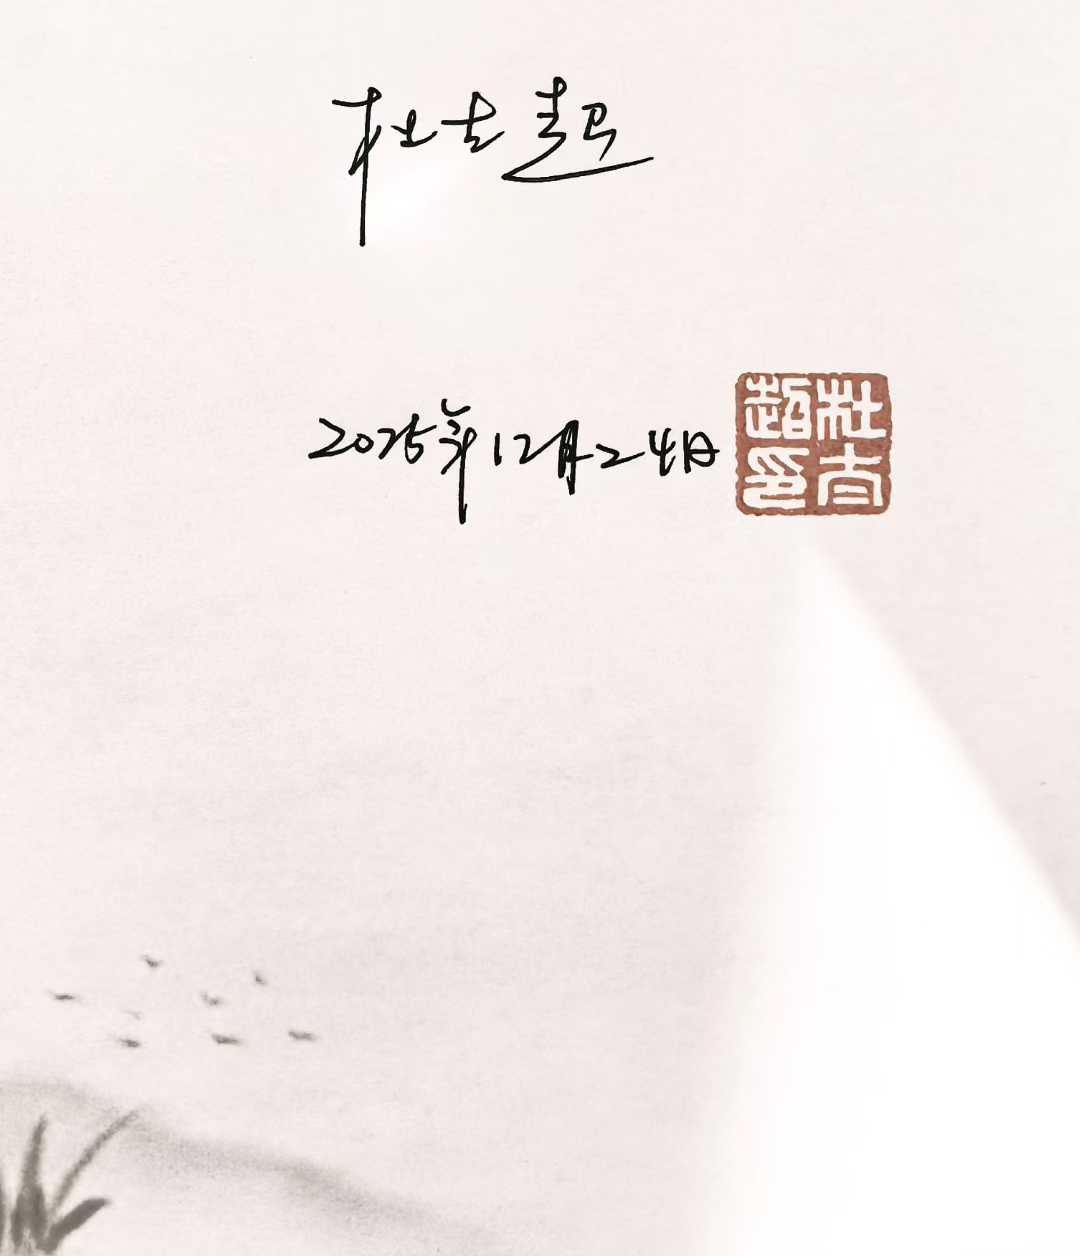 杜超
2025年12月24日
杜超印